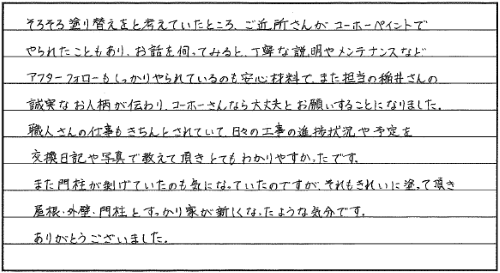 そろそろ塗り替えをと考えていたところ、ご近所さんがコーホーペイントで
やられたこともあり、お話を伺ってみると、丁寧な説明やメンテナンスなど
アフターフォローもしっかりやられているのも安心材料で、また担当の稲井さんの
誠実なお人柄が伝わり、コーホーさんなら大丈夫とお願いすることになりました。
職人さんの仕事もきちんとされていて、日々の工事の進捗状況や予定を
交換日記や写真で教えて頂きとてもわかりやすかったです。
また門柱が剥げていたのも気になっていたのですが、それもきれいに塗って頂き
屋根・外壁・門柱とすっかり家が新しくなったような気分です。
ありがとうございました。